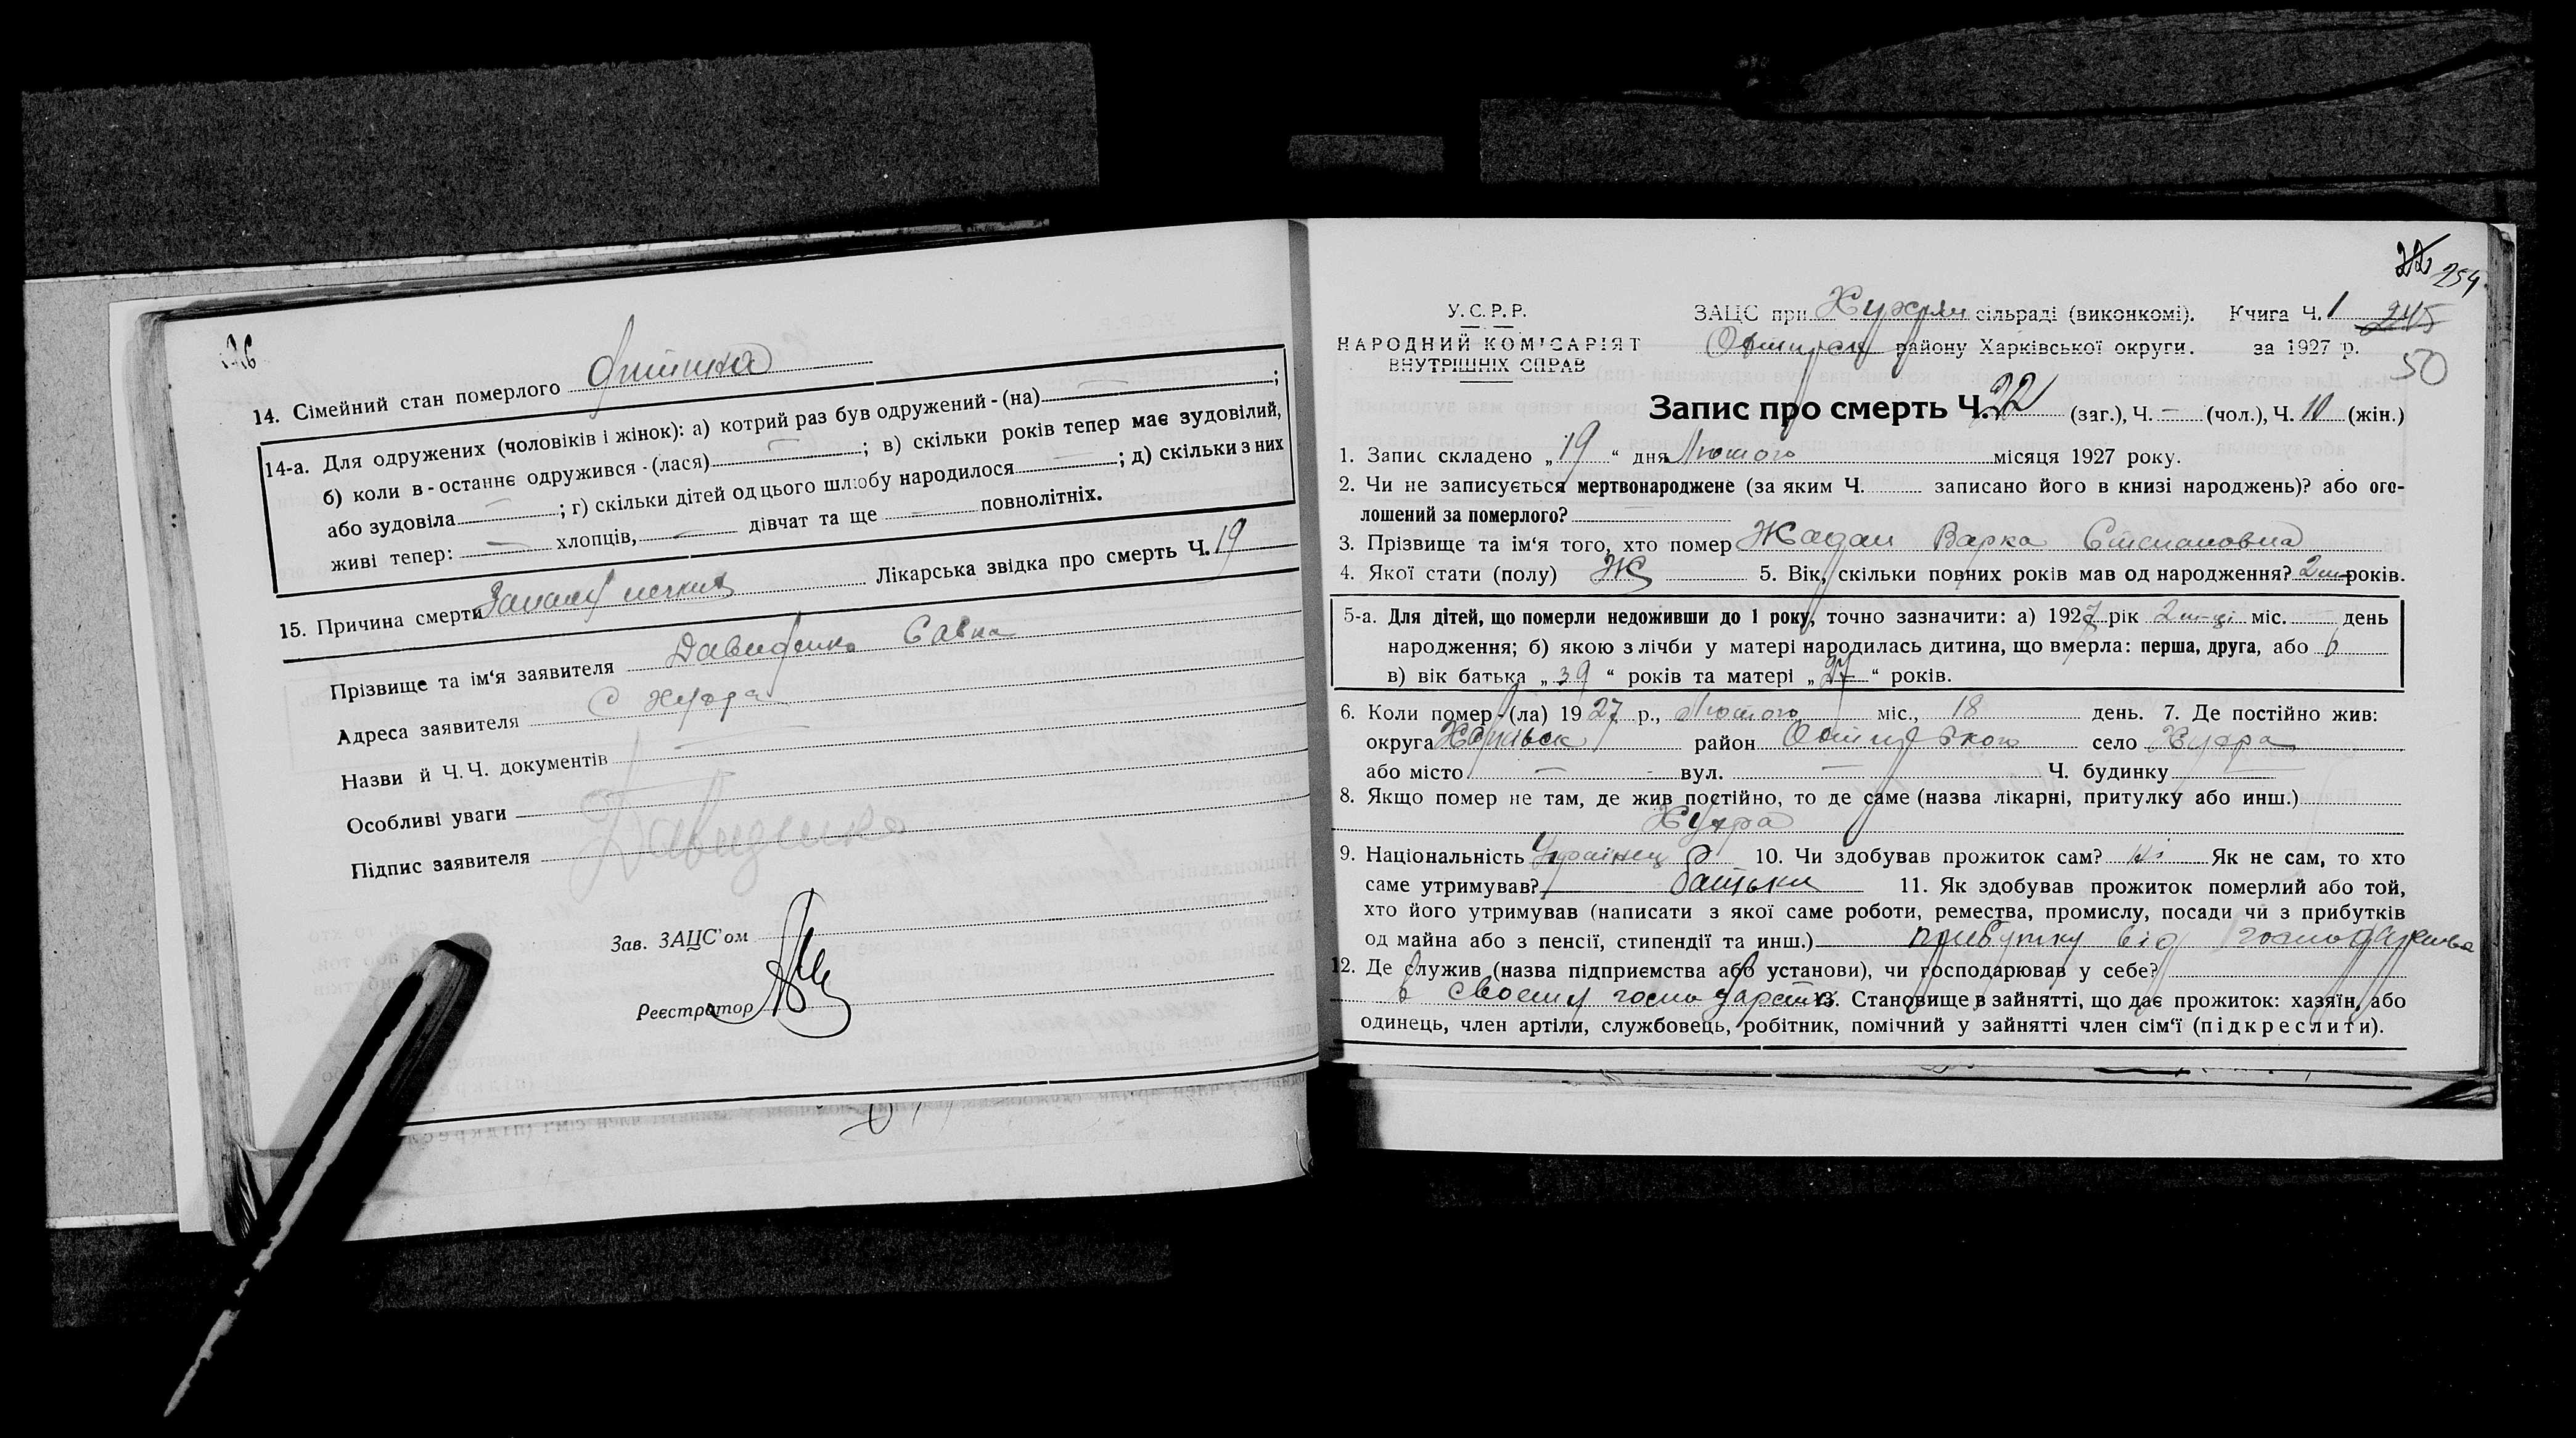 14. Сімейний стан померлого дитина
14-а. Для одружених (чоловіків і жінок): а) котрий раз був одружений - (на) — ;
б) коли в-останнє одружився - (лася) — ; в) скільки років тепер має зудовілий,
або зудовіла — ; г) скільки дітей од цього шлюбу народилося — ; д) скільки з них
живі тепер: — хлопців, — дівчат та ще — повнолітніх.
15. Причина смерти Запал легких Лікарська звідка про смерть Ч. 19
Прізвище та ім'я заявителя Давиденко Савка
Адреса заявителя С Хухра
Назви й Ч. Ч. документів —
Особливі уваги
Підпис заявителя Давиденко
Зав. ЗАЦС'ом
Реєстратор
22 254
У. С. Р. Р.
НАРОДНИЙ КОМІСАРІЯТ
ВНУТРІШНІХ СПРАВ
ЗАЦС при Хухрян сільраді (виконкомі). Книга Ч. 1 245
Охтирськ району Харківської округи. за 1927 р.
50
Запис про смерть Ч. 22 (заг.), Ч. — (чол.), Ч. 10 (жін.)
1. Запис складено „ 19 “ дня Лютого місяця 1927 року.
2. Чи не записується мертвонароджене (за яким Ч. записано його в книзі народжень)? або ого-
лошений за померлого? —
3. Прізвище та ім'я того, хто помер Жадан Варка Степановна
4. Якої стати (полу) Ж 5. Вік, скільки повних років мав од народження? 2 м років.
5-а. Для дітей, що померли недоживши до 1 року, точно зазначити: а) 1927 рік 2 м-ці міс. — день
народження; б) якою з лічби у матері народилась дитина, що вмерла: перша, друга, або 6
в) вік батька „ 39 “ років та матері „ 37 “ років.
6. Коли помер-(ла) 1927 р., Лютого міс., 18 день. 7. Де постійно жив:
округа Харківськ район Охтирського село Хухра
або місто — вул. — Ч. будинку —
8. Якщо помер не там, де жив постійно, то де саме (назва лікарні, притулку або инш.)
Хухра
9. Національність Українец 10. Чи здобував прожиток сам? ні Як не сам, то хто
саме утримував? батьки 11. Як здобував прожиток померлий або той,
хто його утримував (написати з якої саме роботи, ремества, промислу, посади чи з прибутків
од майна або з пенсії, стипендії та инш.) прибутку від господарства
12. Де служив (назва підприємства або установи), чи господарював у себе?
в своему господарстві 13. Становище в зайнятті, що дає прожиток: хазяїн, або
одинець, член артіли, службовець, робітник, помічний у зайнятті член сім'ї (підкреслити).